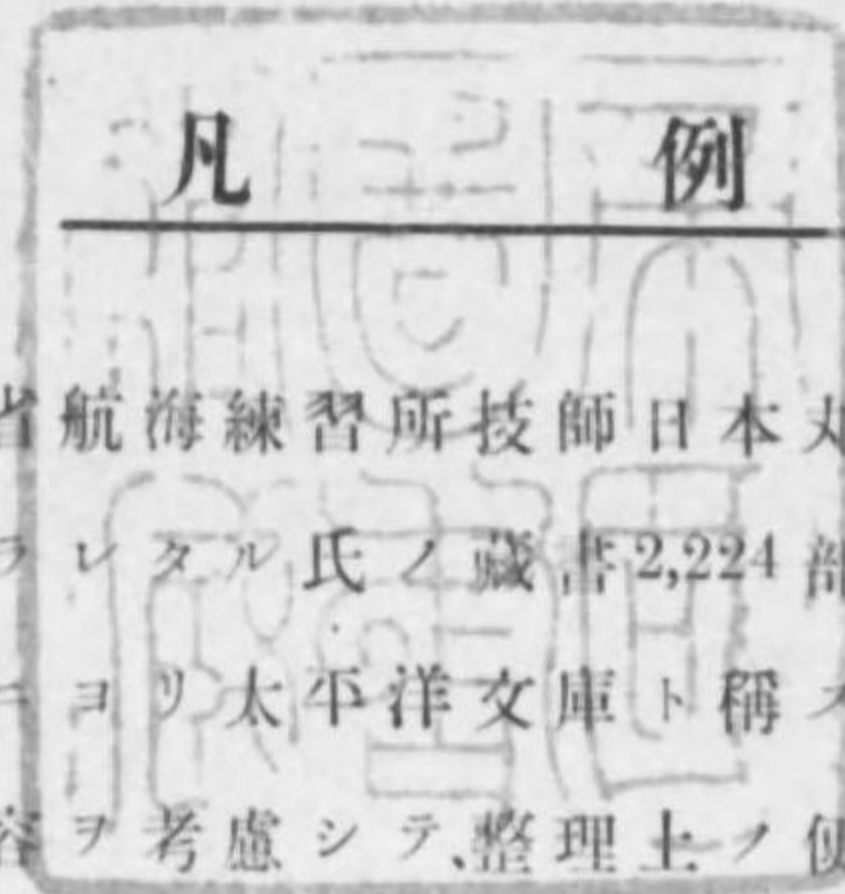 凡例
省航海練習所技師日本丸
ラレタル氏ノ藏書2,224部
ニヨリ太平洋文庫ト稱ス
容ヲ考慮シテ、整理上ノ便